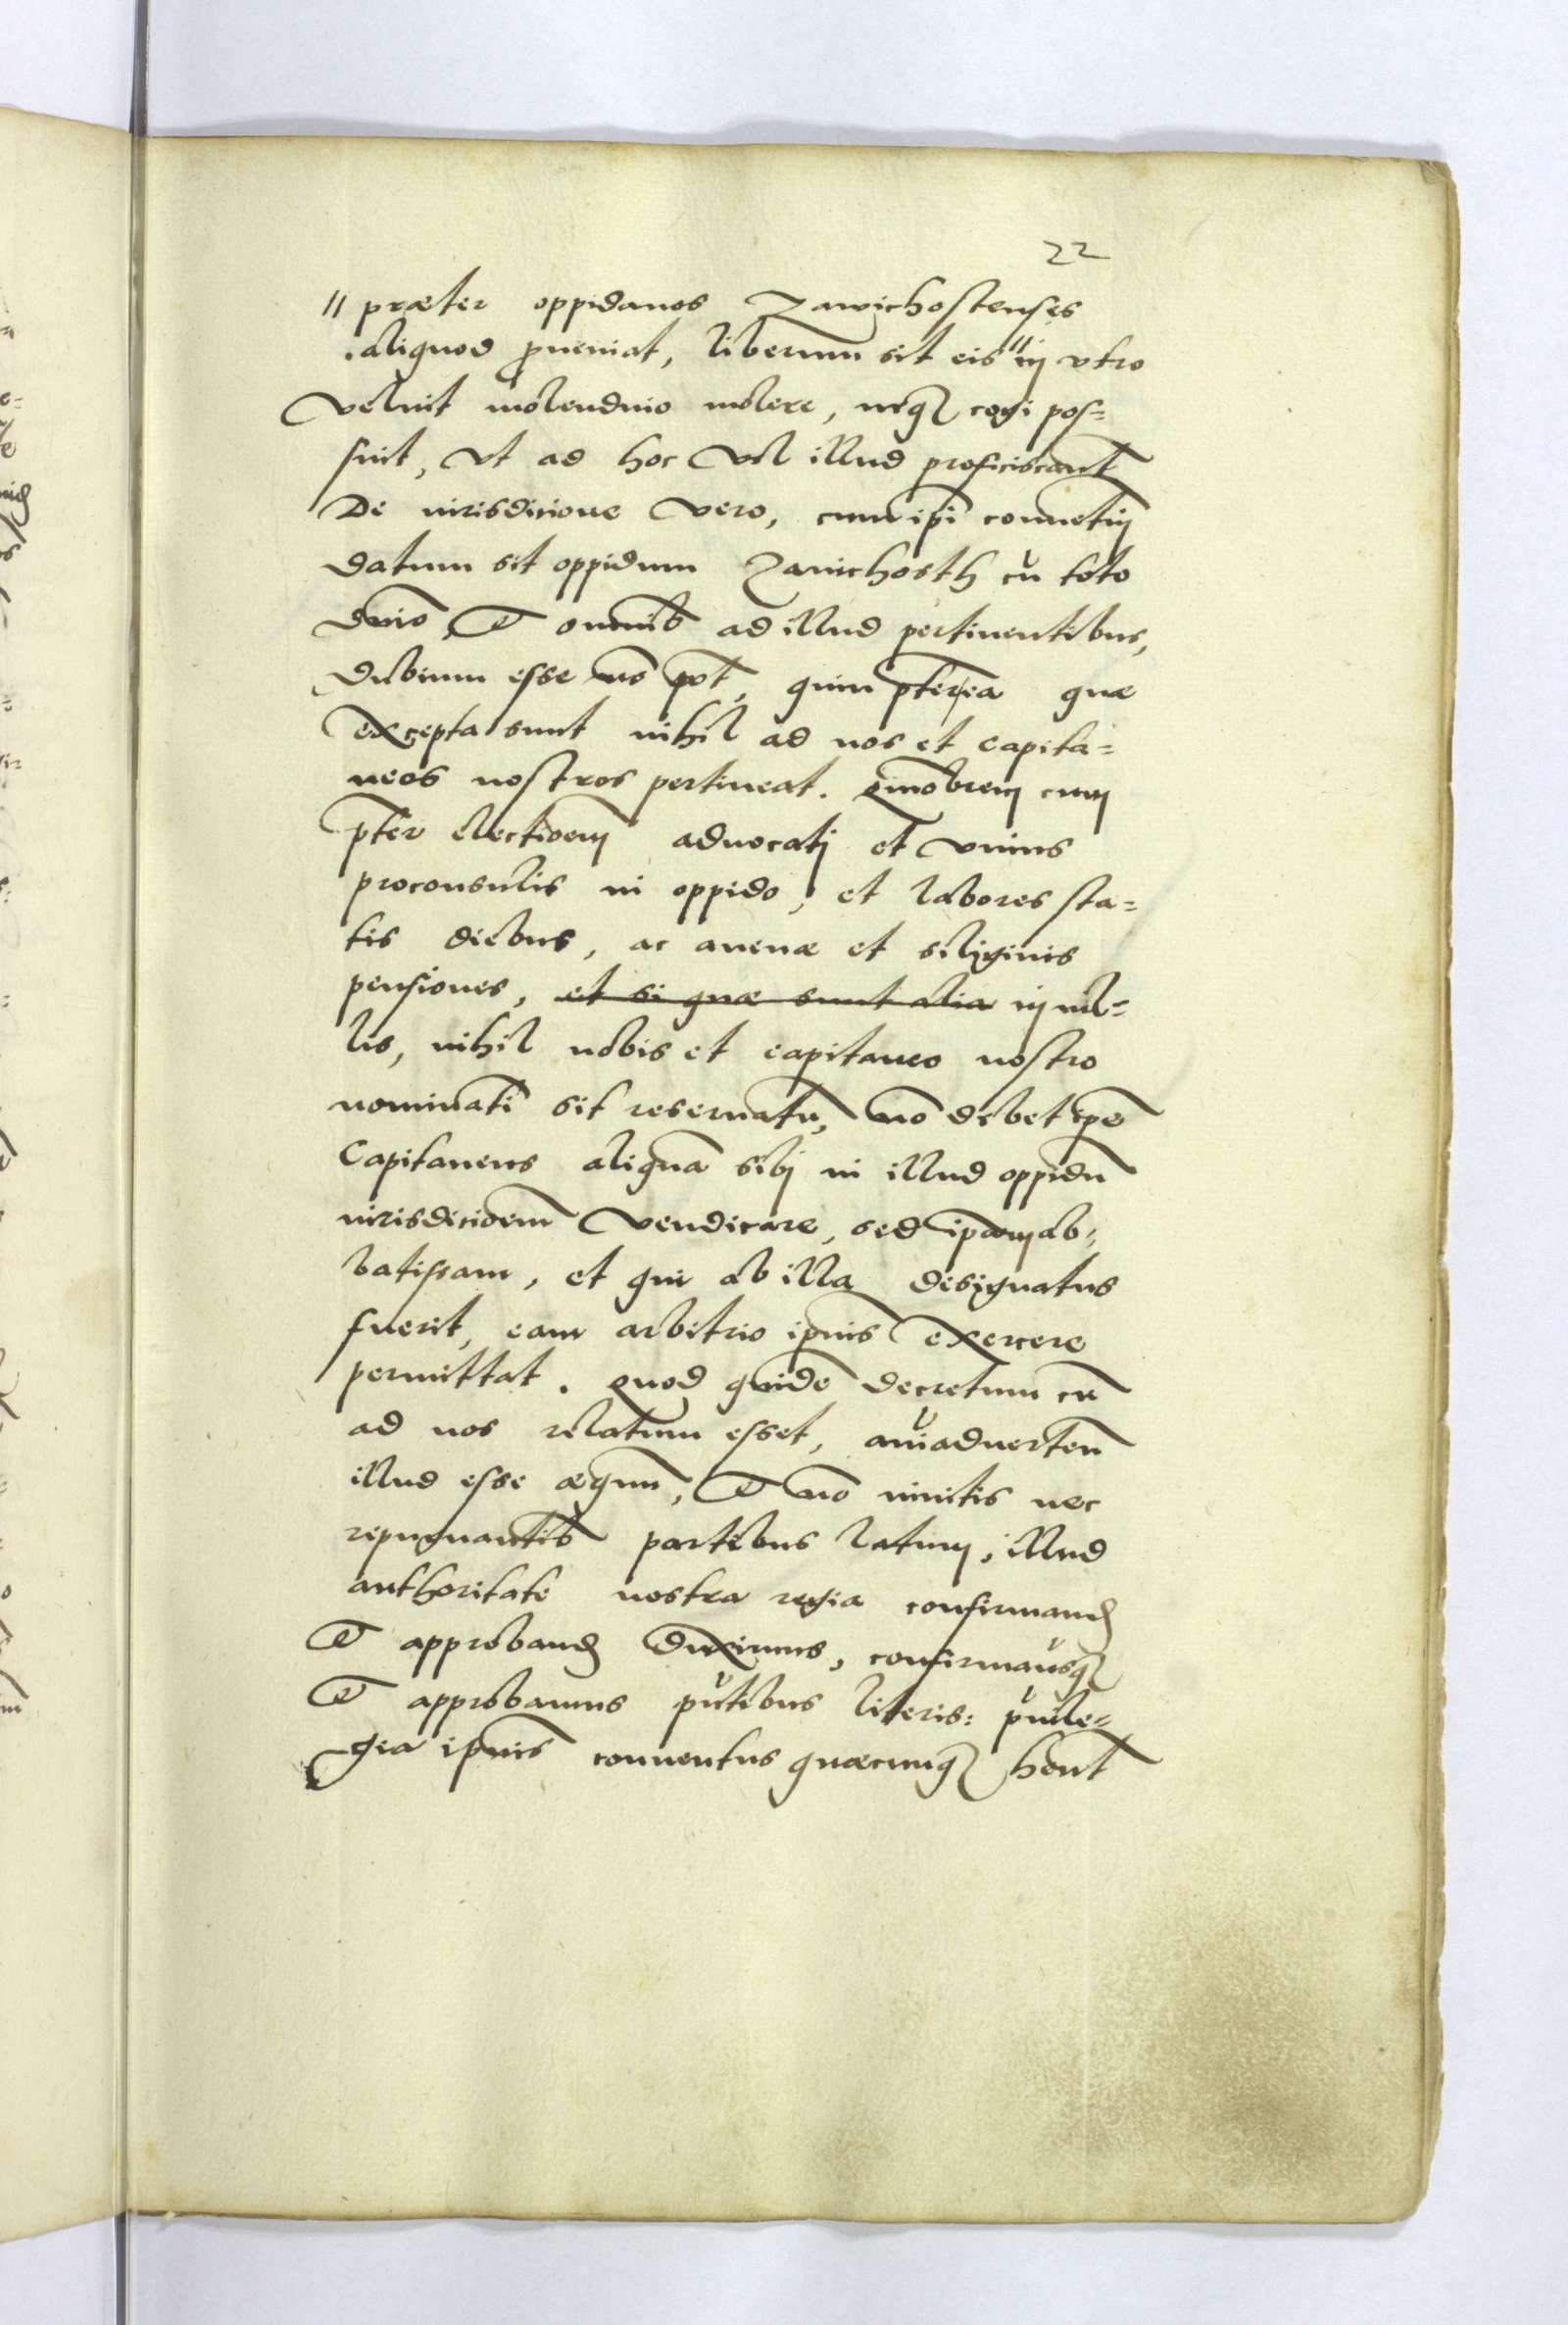 22
" præter oppidanos Zawichostenses
aliquod ꝓueniat, liberum sit eis " in vtro
veluit molendino molere, neq3 cogi pos=
sint, vt ad hoc vel illud proficiscant̃
De iurisdicione vero, cum ip̃i conuetui
datum sit oppidum Zauichosth cũ toto
dnĩo et omnib ad illud pertinentibus,
dubium esse nõ pt̃, quin pterea quæ
excepta sunt nihil ad nos et capita=
neos nostros pertineat. Quobrem cum
pter electioem aduocati et vnius
proconsulis in oppido, et labores sta=
tis diebus, ac auenæ et siliginis
pensiones, et si quæ sunt alia in vil=
lis, nihil nobis et capitaneo nostro
nominati sit reseruatũ, nõ debet ipe
Capitaneus aliquã sibi in illud oppidũ
iurisdicioem vendicare, sed ipam ab=
batissam, et qui ab illa designatus
fuerit, eam arbitrio ipius exercere
permittat. Quod quide decretum cũ
ad nos relatum esset, aĩaduerten
illud esse æquũ, et nõ inuitis nec
repugnantib partibus latum, illud
authoritate nostra regia confirmand
et approband duximus, confirmaũsq3
et approbamus pñtibus literis: priuile=
gia ipius conuentus quæcunq3 hent̃